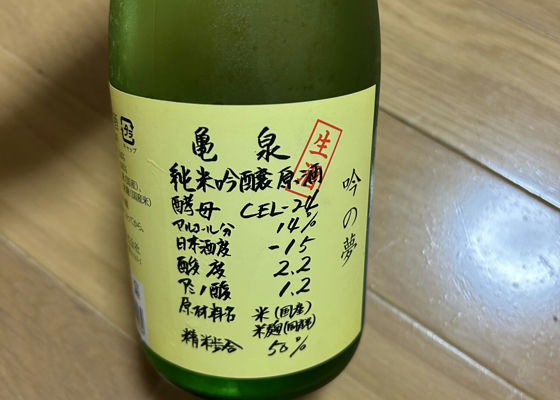 亀泉
生酒
純米吟醸原酒
酵母 CEL-24
アルコール分 14%
日本酒度 -15
酸度 2.2
アミノ酸 1.2
原材料名 米(国産)
米麹(国産米)
精米歩合 50%
吟の夢